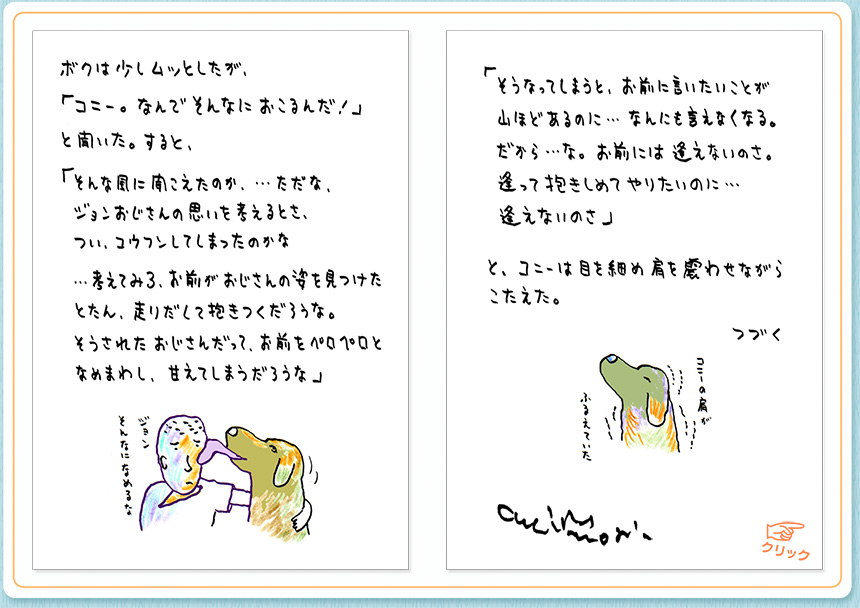 ボクは少しムッとしたが、
「コニー。なんで そんなに おこるんだ！」
と聞いた。すると、
「そんな風に聞こえたのか、…ただな、
ジョンおじさんの思いを考えるとさ、
つい、コウフンしてしまったのかな
…考えてみろ、お前がおじさんの姿を見つけた
とたん、走りだして抱きつくだろうな。
そうされた おじさんだって、お前をペロペロと
なめまわし、甘えてしまうだろうな」
ジョン
そんなになめるな
「そうなってしまうと、お前に言いたいことが
山ほどあるのに… なんにも言えなくなる。
だから…な。お前には 逢えないのさ。
逢って抱きしめて やりたいのに…
逢えないのさ」
と、コニーは目を細め肩を震わせながら
こたえた。
つづく
コニーの肩が
ふるえていた
クリック